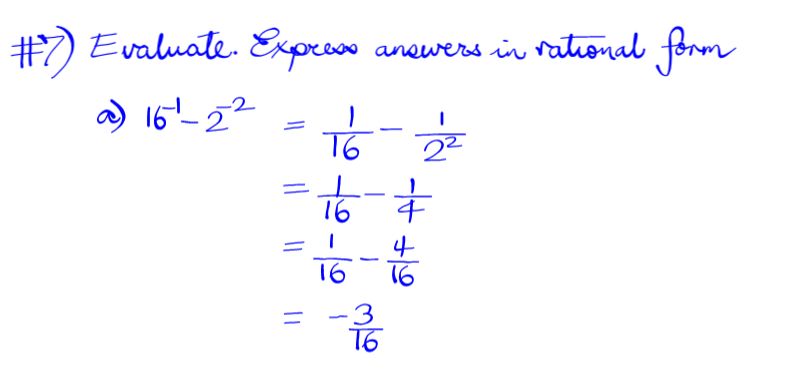 #7) Evaluate. Express answers in rational form
a) 16⁻¹ - 2⁻² = 1/16 - 1/2²
= 1/16 - 1/4
= 1/16 - 4/16
= -3/16